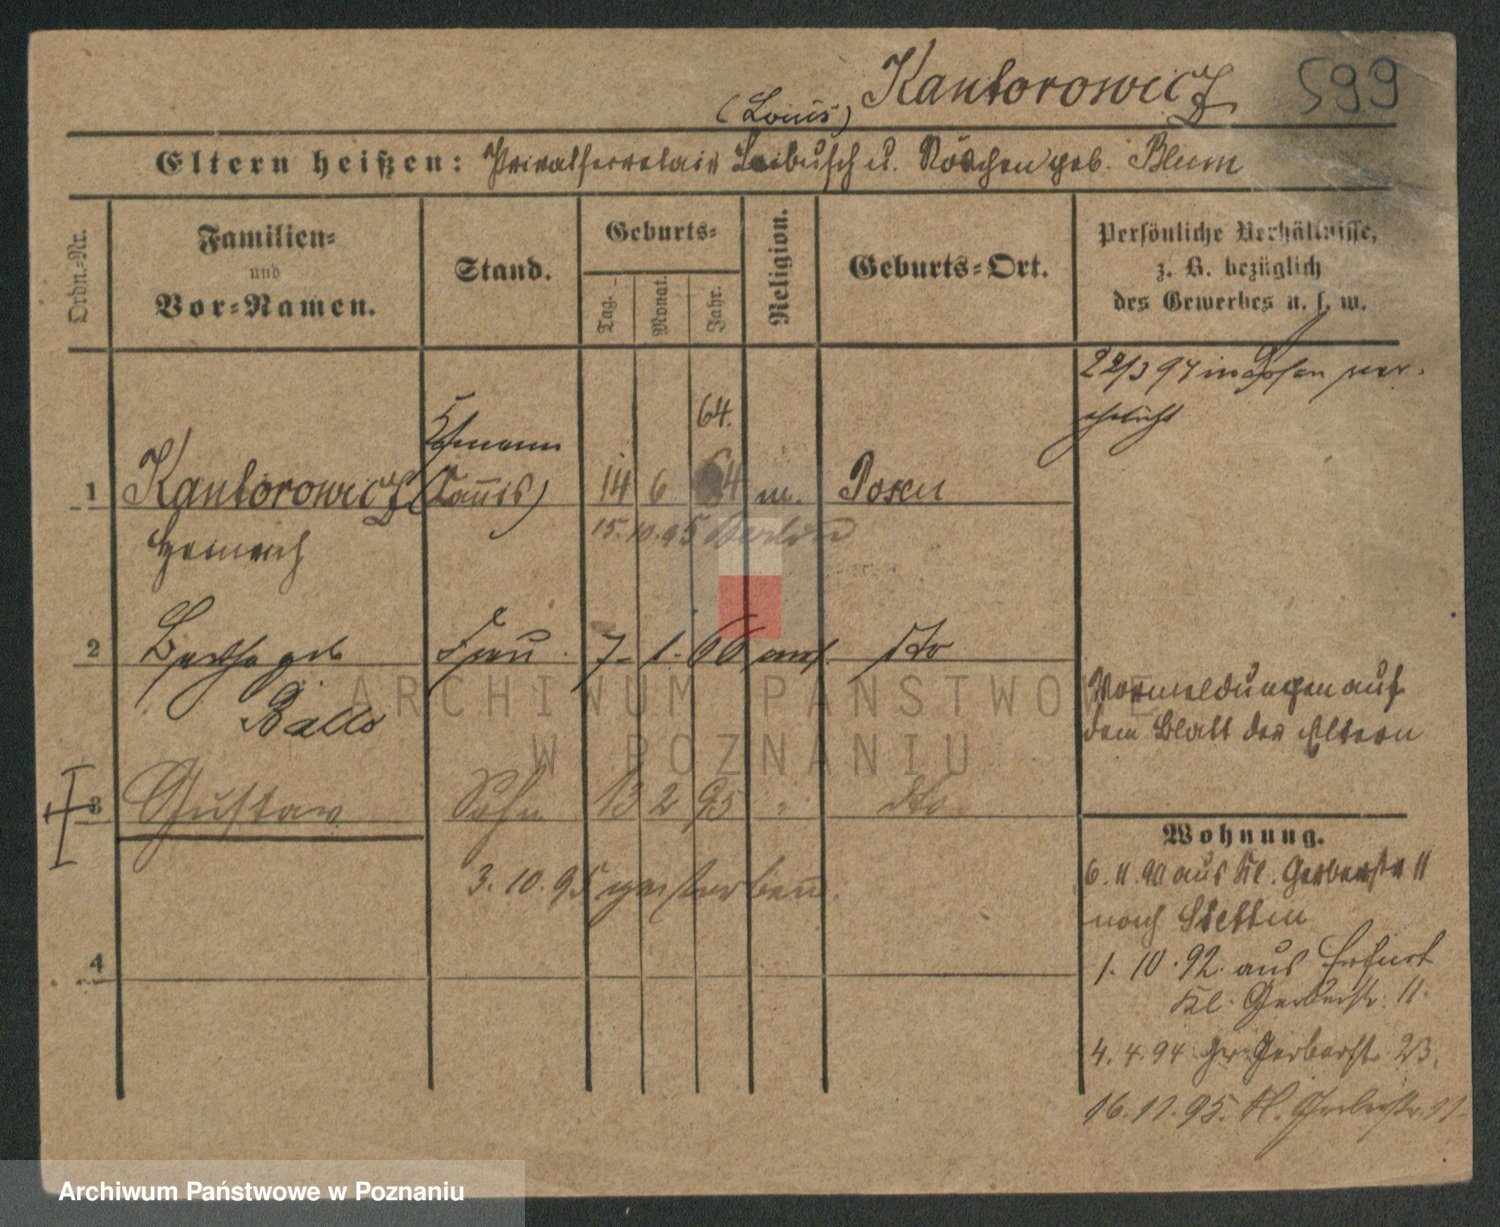 Kantorowicz 599
(Louis)
Eltern heißen: Privatsecretair Leibusch u. Röschen geb. Blum
Ordn.-Nr.
Familien-
und
Vor-Namen.
Stand.
Geburts-
Tag.
Monat.
Jahr.
Religion.
Geburts-Ort.
Persönliche Verhältnisse,
z. B. bezüglich
des Gewerbes u. s. w.
22/3 94 in Posen ver-
ehelicht
64.
Kfmann
1 Kantorowicz (Louis) 14 6 64 m. Posen
Heinrich
15.10.95 Berlin
2 Bertha geb Frau 7. 1. 66 mos. dto
Ballo
Vormeldungen auf
dem Blatt der Eltern
3 Gustav Sohn 13 2 95 " dto
3.10.95 gestorben.
4
Wohnung.
6.11.90 aus Kl. Gerberstr 11
nach Stettin
1.10.92. aus Erfurt
Kl. Gerberstr. 11.
4.4.94 Gr. Gerberstr 23.
16.11.95. Kl. Gerberstr. 11
ARCHIWUM PAŃSTWOWE
W POZNANIU
Archiwum Państwowe w Poznaniu